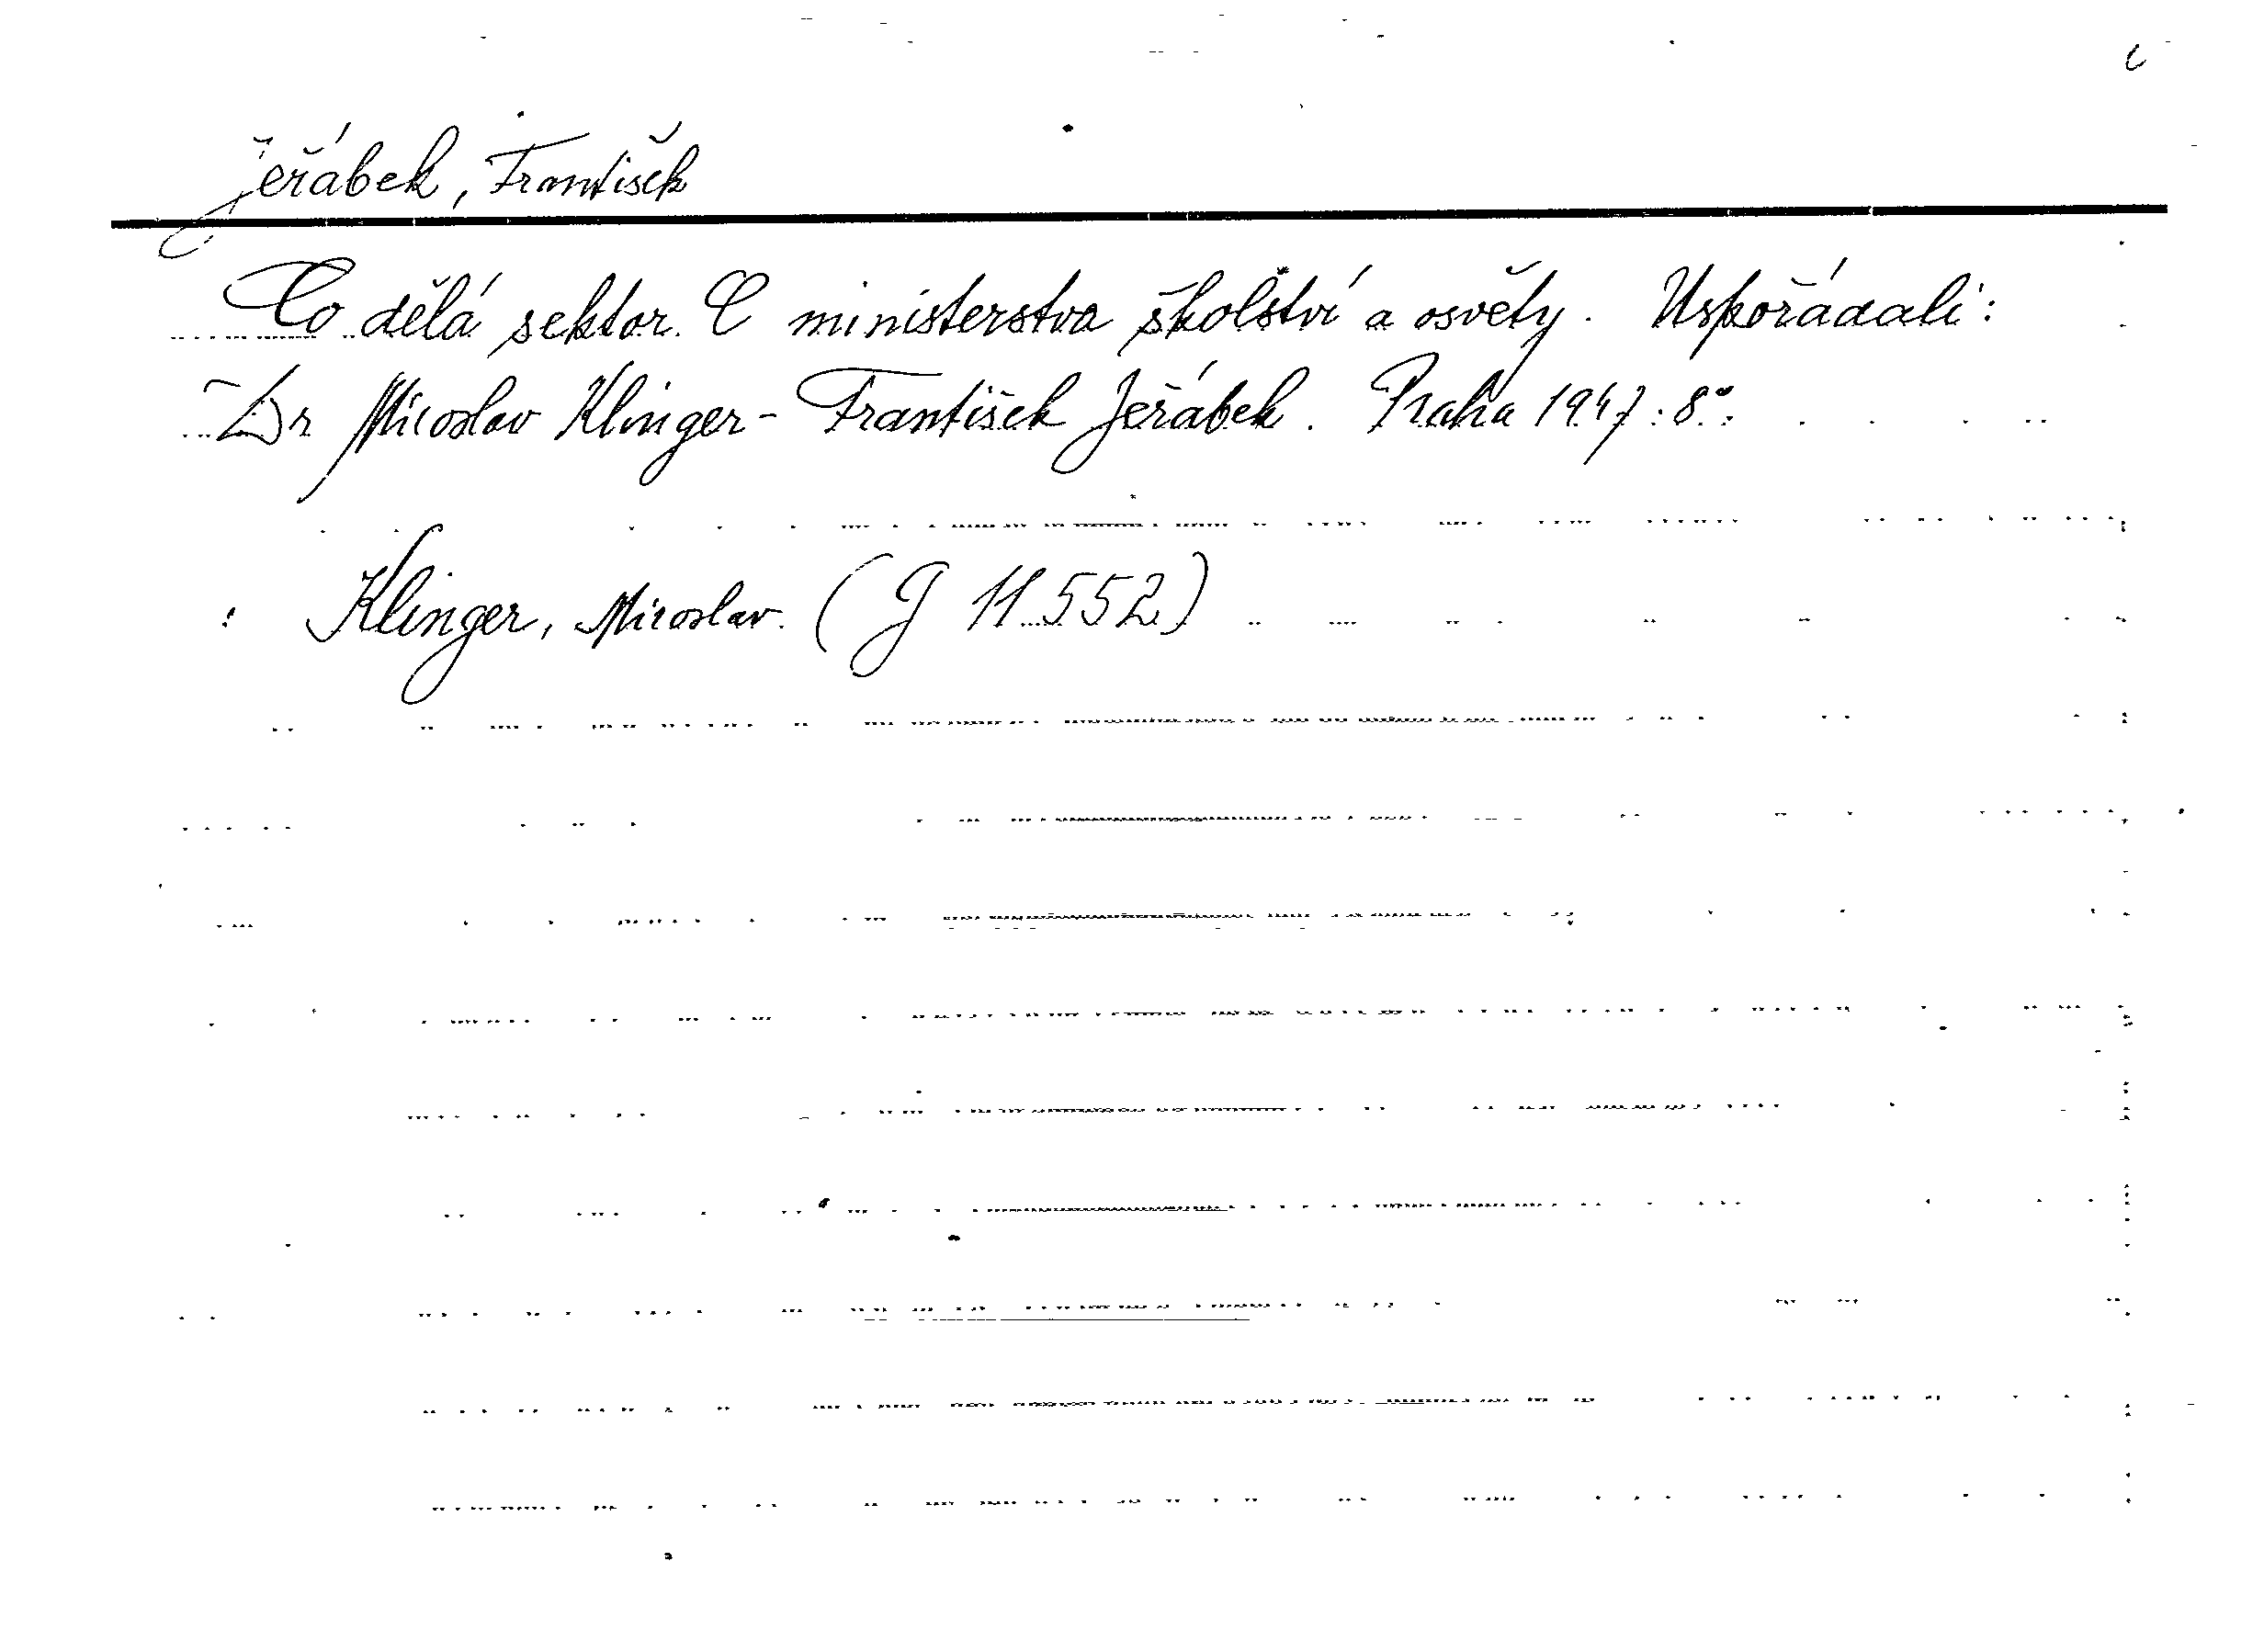 Jeřábek, František
Co dělá sektor C ministerstva školství a osvěty. Uspořádali:
Dr Miroslav Klinger - František Jeřábek. Praha 1947: 8°.
: Klinger, Miroslav. (J 11.552)